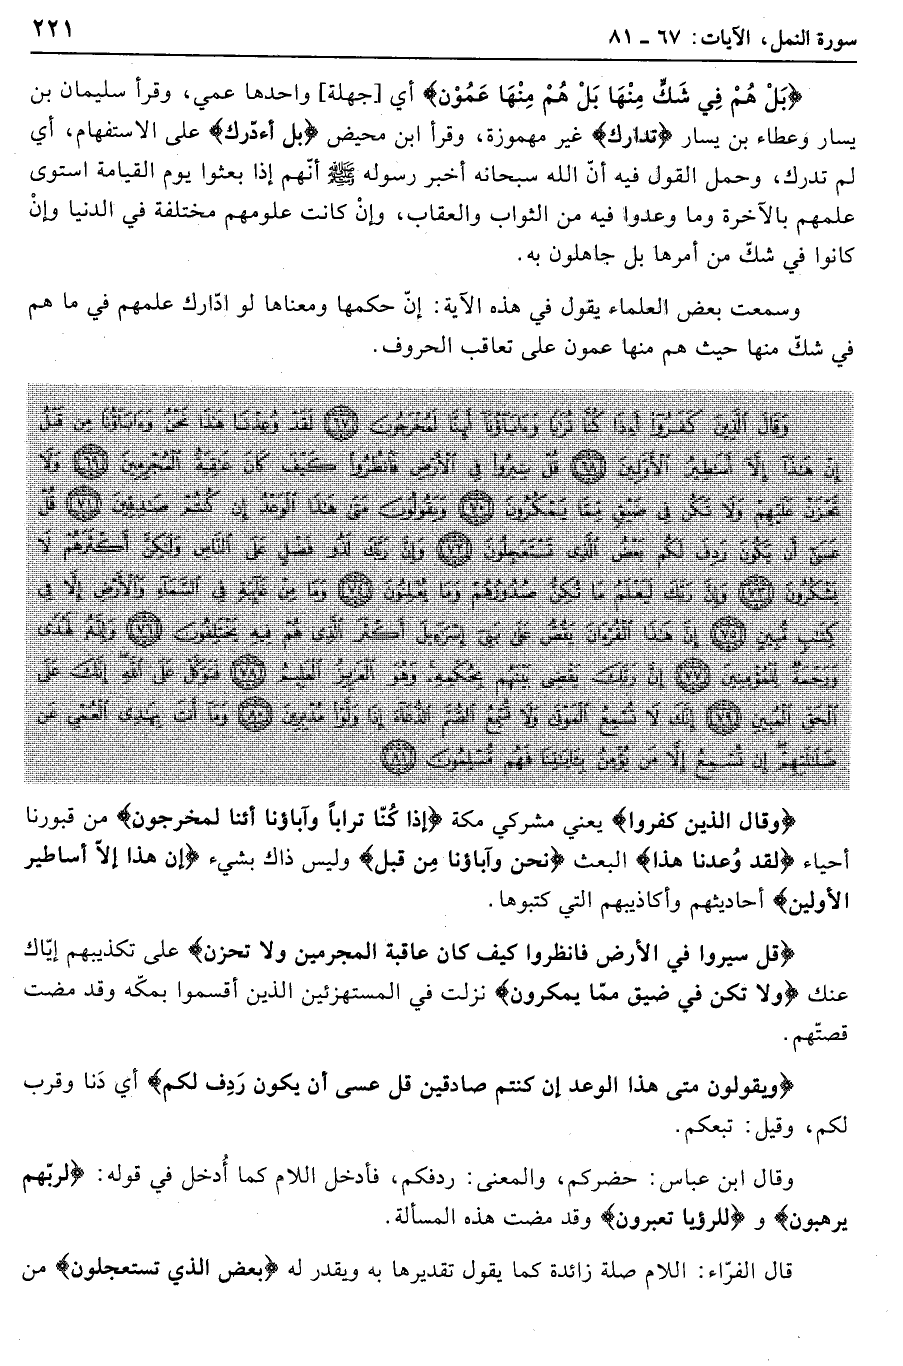 سورة النمل، الآيات: ٦٧ ـ ٨١
٢٢١
﴿بَلْ هُمْ فِي شَكٍّ مِنْهَا بَلْ هُمْ مِنْهَا عَمُوْن﴾ أي [جهلة] واحدها عمي، وقرأ سليمان بن
يسار وعطاء بن يسار ﴿تدارك﴾ غير مهموزة، وقرأ ابن محيض ﴿بل أءدّرك﴾ على الاستفهام، أي
لم تدرك، وحمل القول فيه أنّ الله سبحانه أخبر رسوله ﷺ أنّهم إذا بعثوا يوم القيامة استوى
علمهم بالآخرة وما وعدوا فيه من الثواب والعقاب، وإنْ كانت علومهم مختلفة في الدنيا وإنْ
كانوا في شكّ من أمرها بل جاهلون به.
وسمعت بعض العلماء يقول في هذه الآية: إنّ حكمها ومعناها لو ادّارك علمهم في ما هم
في شكّ منها حيث هم منها عمون على تعاقب الحروف.
وَقَالَ ٱلَّذِينَ كَفَرُوٓا۟ أَءِذَا كُنَّا تُرَٰبًا وَءَابَآؤُنَآ أَئِنَّا لَمُخْرَجُونَ ﴿٦٧﴾ لَقَدْ وُعِدْنَا هَٰذَا نَحْنُ وَءَابَآؤُنَا مِن قَبْلُ
إِنْ هَٰذَآ إِلَّآ أَسَٰطِيرُ ٱلْأَوَّلِينَ ﴿٦٨﴾ قُلْ سِيرُوا۟ فِى ٱلْأَرْضِ فَٱنظُرُوا۟ كَيْفَ كَانَ عَٰقِبَةُ ٱلْمُجْرِمِينَ ﴿٦٩﴾ وَلَا
تَحْزَنْ عَلَيْهِمْ وَلَا تَكُن فِى ضَيْقٍ مِّمَّا يَمْكُرُونَ ﴿٧٠﴾ وَيَقُولُونَ مَتَىٰ هَٰذَا ٱلْوَعْدُ إِن كُنتُمْ صَٰدِقِينَ ﴿٧١﴾ قُلْ
عَسَىٰٓ أَن يَكُونَ رَدِفَ لَكُم بَعْضُ ٱلَّذِى تَسْتَعْجِلُونَ ﴿٧٢﴾ وَإِنَّ رَبَّكَ لَذُو فَضْلٍ عَلَى ٱلنَّاسِ وَلَٰكِنَّ أَكْثَرَهُمْ لَا
يَشْكُرُونَ ﴿٧٣﴾ وَإِنَّ رَبَّكَ لَيَعْلَمُ مَا تُكِنُّ صُدُورُهُمْ وَمَا يُعْلِنُونَ ﴿٧٤﴾ وَمَا مِنْ غَآئِبَةٍ فِى ٱلسَّمَآءِ وَٱلْأَرْضِ إِلَّا فِى
كِتَٰبٍ مُّبِينٍ ﴿٧٥﴾ إِنَّ هَٰذَا ٱلْقُرْءَانَ يَقُصُّ عَلَىٰ بَنِىٓ إِسْرَٰٓءِيلَ أَكْثَرَ ٱلَّذِى هُمْ فِيهِ يَخْتَلِفُونَ ﴿٧٦﴾ وَإِنَّهُۥ لَهُدًى
وَرَحْمَةٌ لِّلْمُؤْمِنِينَ ﴿٧٧﴾ إِنَّ رَبَّكَ يَقْضِى بَيْنَهُم بِحُكْمِهِۦ وَهُوَ ٱلْعَزِيزُ ٱلْعَلِيمُ ﴿٧٨﴾ فَتَوَكَّلْ عَلَى ٱللَّهِ إِنَّكَ عَلَى
ٱلْحَقِّ ٱلْمُبِينِ ﴿٧٩﴾ إِنَّكَ لَا تُسْمِعُ ٱلْمَوْتَىٰ وَلَا تُسْمِعُ ٱلصُّمَّ ٱلدُّعَآءَ إِذَا وَلَّوْا۟ مُدْبِرِينَ ﴿٨٠﴾ وَمَآ أَنتَ بِهَٰدِى ٱلْعُمْىِ عَن
ضَلَٰلَتِهِمْ إِن تُسْمِعُ إِلَّا مَن يُؤْمِنُ بِـَٔايَٰتِنَا فَهُم مُّسْلِمُونَ ﴿٨١﴾
﴿وقال الذين كفروا﴾ يعني مشركي مكة ﴿إذا كُنّا تراباً وآباؤنا أئنا لمخرجون﴾ من قبورنا
أحياء ﴿لقد وُعدنا هذا﴾ البعث ﴿نحن وآباؤنا مِن قبل﴾ وليس ذاك بشيء ﴿إن هذا إلاّ أساطير
الأولين﴾ أحاديثهم وأكاذيبهم التي كتبوها.
﴿قل سيروا في الأرض فانظروا كيف كان عاقبة المجرمين ولا تحزن﴾ على تكذيبهم إيّاك
عنك ﴿ولا تكن في ضيق ممّا يمكرون﴾ نزلت في المستهزئين الذين أقسموا بمكه وقد مضت
قصتّهم.
﴿ويقولون متى هذا الوعد إن كنتم صادقين قل عسى أن يكون رَدِف لكم﴾ أي دَنا وقرب
لكم، وقيل: تبعكم.
وقال ابن عباس: حضركم، والمعنى: ردفكم، فأدخل اللام كما أُدخل في قوله: ﴿لربّهم
يرهبون﴾ و ﴿للرؤيا تعبرون﴾ وقد مضت هذه المسألة.
قال الفرّاء: اللام صلة زائدة كما يقول تقديرها به ويقدر له ﴿بعض الذي تستعجلون﴾ من